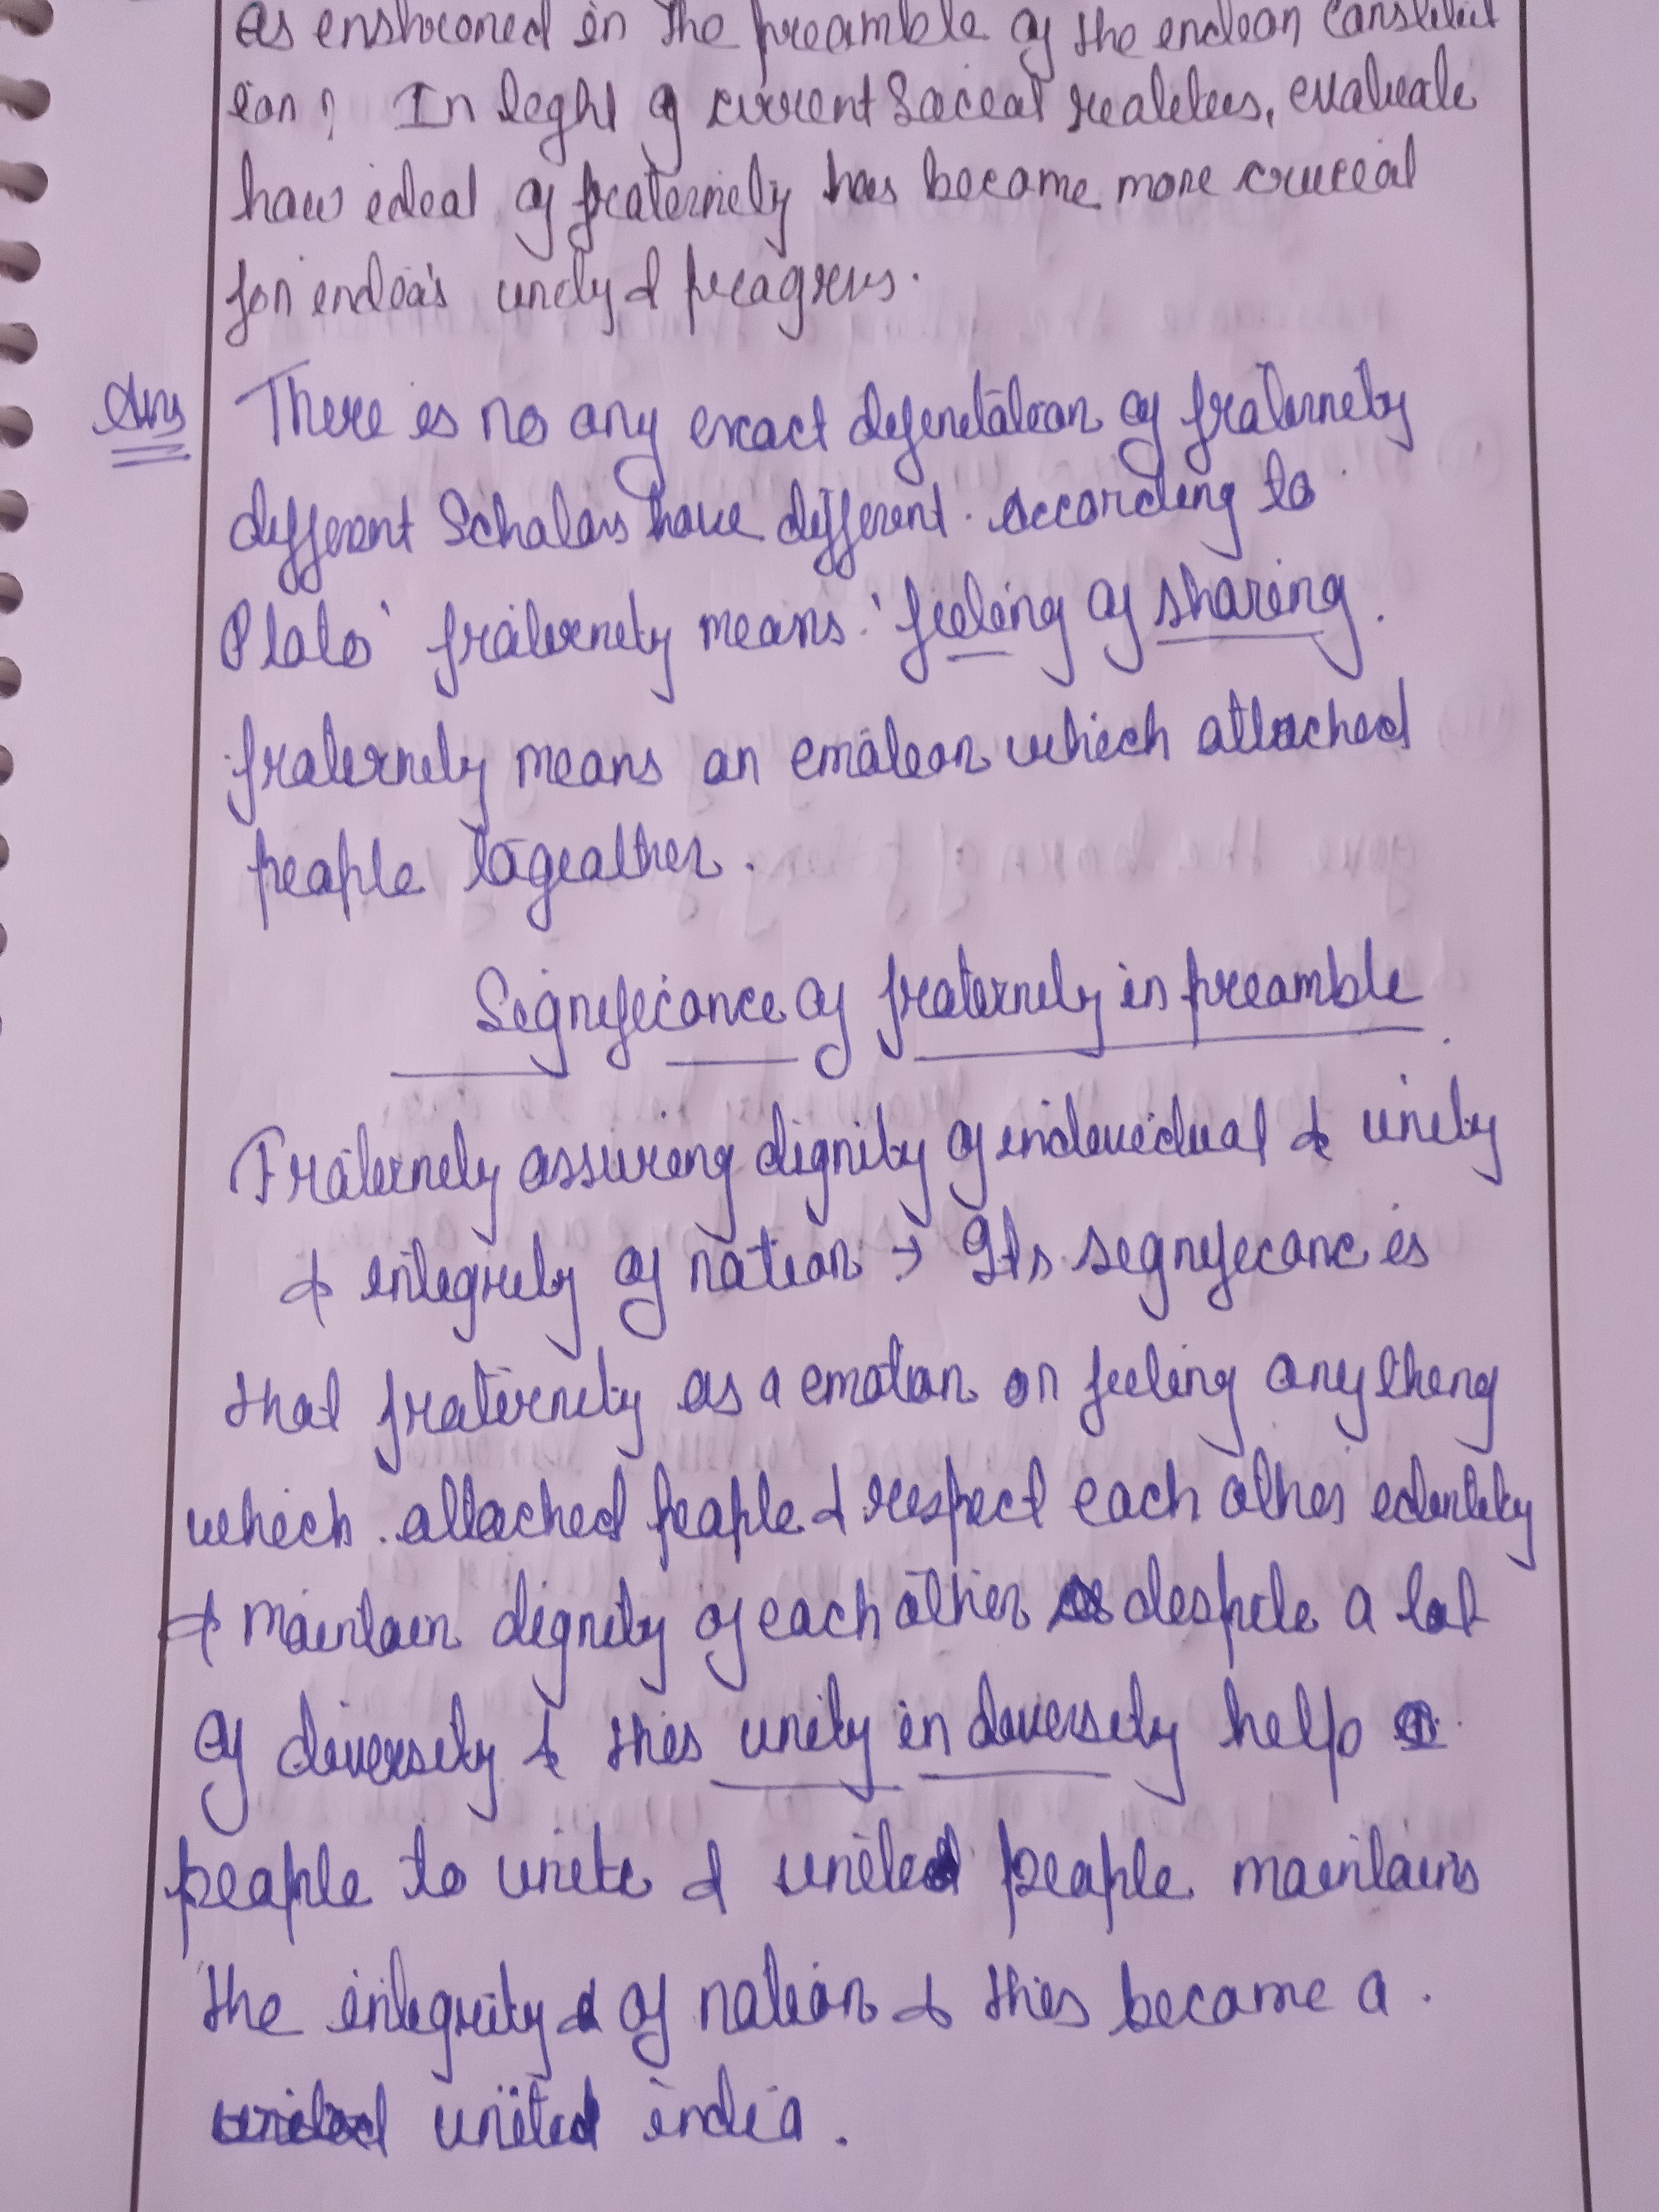 as enshroned in the preamble of the indian Constitut
ion? In light of current Social realities, evaluate
how ideal of fraternity has become more crucial
for india's unity & progress.
Ans There is no any exact defenetation of fraternity
different Scholars have different. According to
Plato' fraternity means 'feeling of sharing.
fraternity means an emotion which attached
people togealther.
Significance of fraternity in preamble
Fraternity assuring dignity of individual & unity
& integrity of nation → Its significance is
that fraternity as a emotion or feeling anything
which attached people & respect each other identity
& maintain dignity of each other despite a lot
of diversity & this unity in diversity help
people to unite & united people maintains
the integrity & of nation & this became a
united united india.